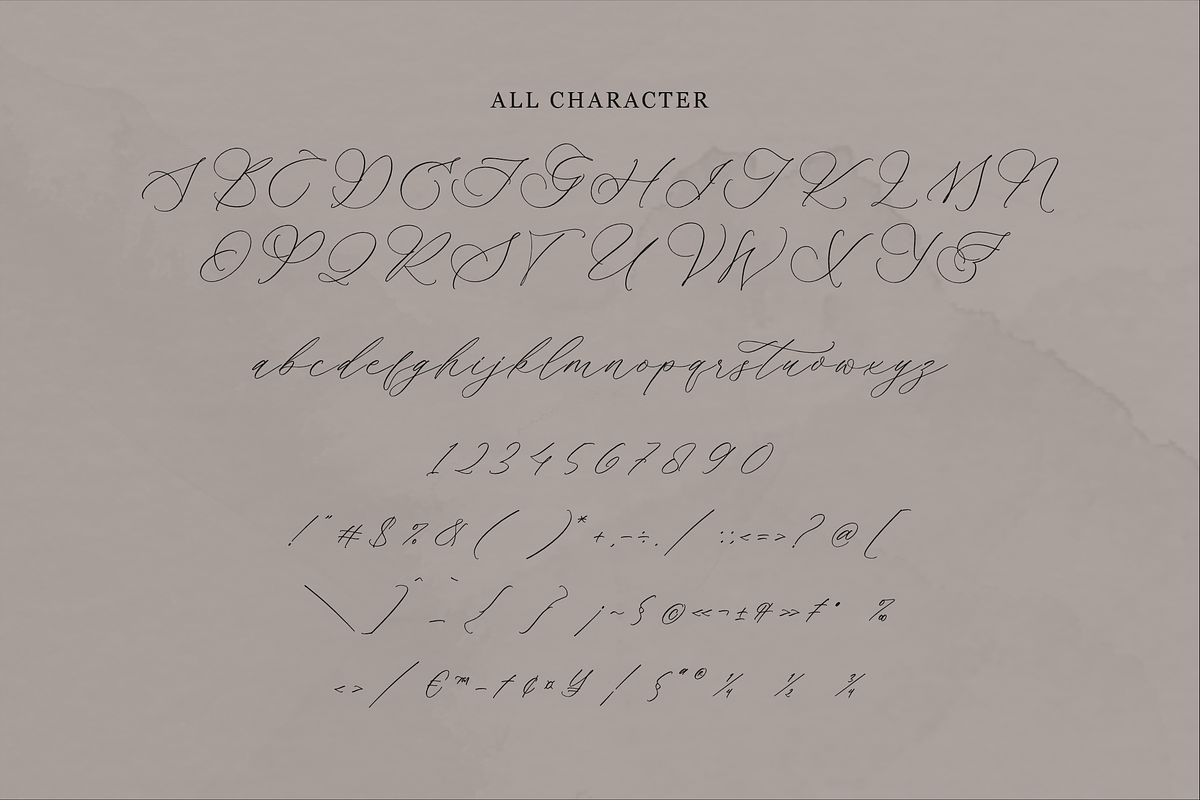 ALL CHARACTER
A B C D E F G H I J K L M N
O P Q R S T U V W X Y Z
abcdefghijklmnopqrstuvwxyz
1 2 3 4 5 6 7 8 9 0
! " # $ % & ( ) * + , - ÷ . / : ; < = > ? @ [
\ ] ^ _ ` { } ¡ ~ § © « ¬ ± ¶ » ‡ • ‰
< > / € ™ – † ¢ ¤ ¥ ¦ § ¨ ® ¼ ½ ¾